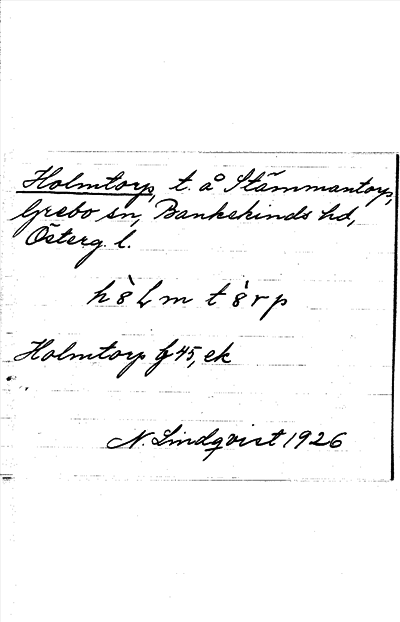 Holmtorp, t. å Stämmantorp,
Grebo sn, Bankekinds hd,
Österg. l.
h8̀lm t8̀rp
Holmtorp G 45, ek
N. Lindqvist 1926